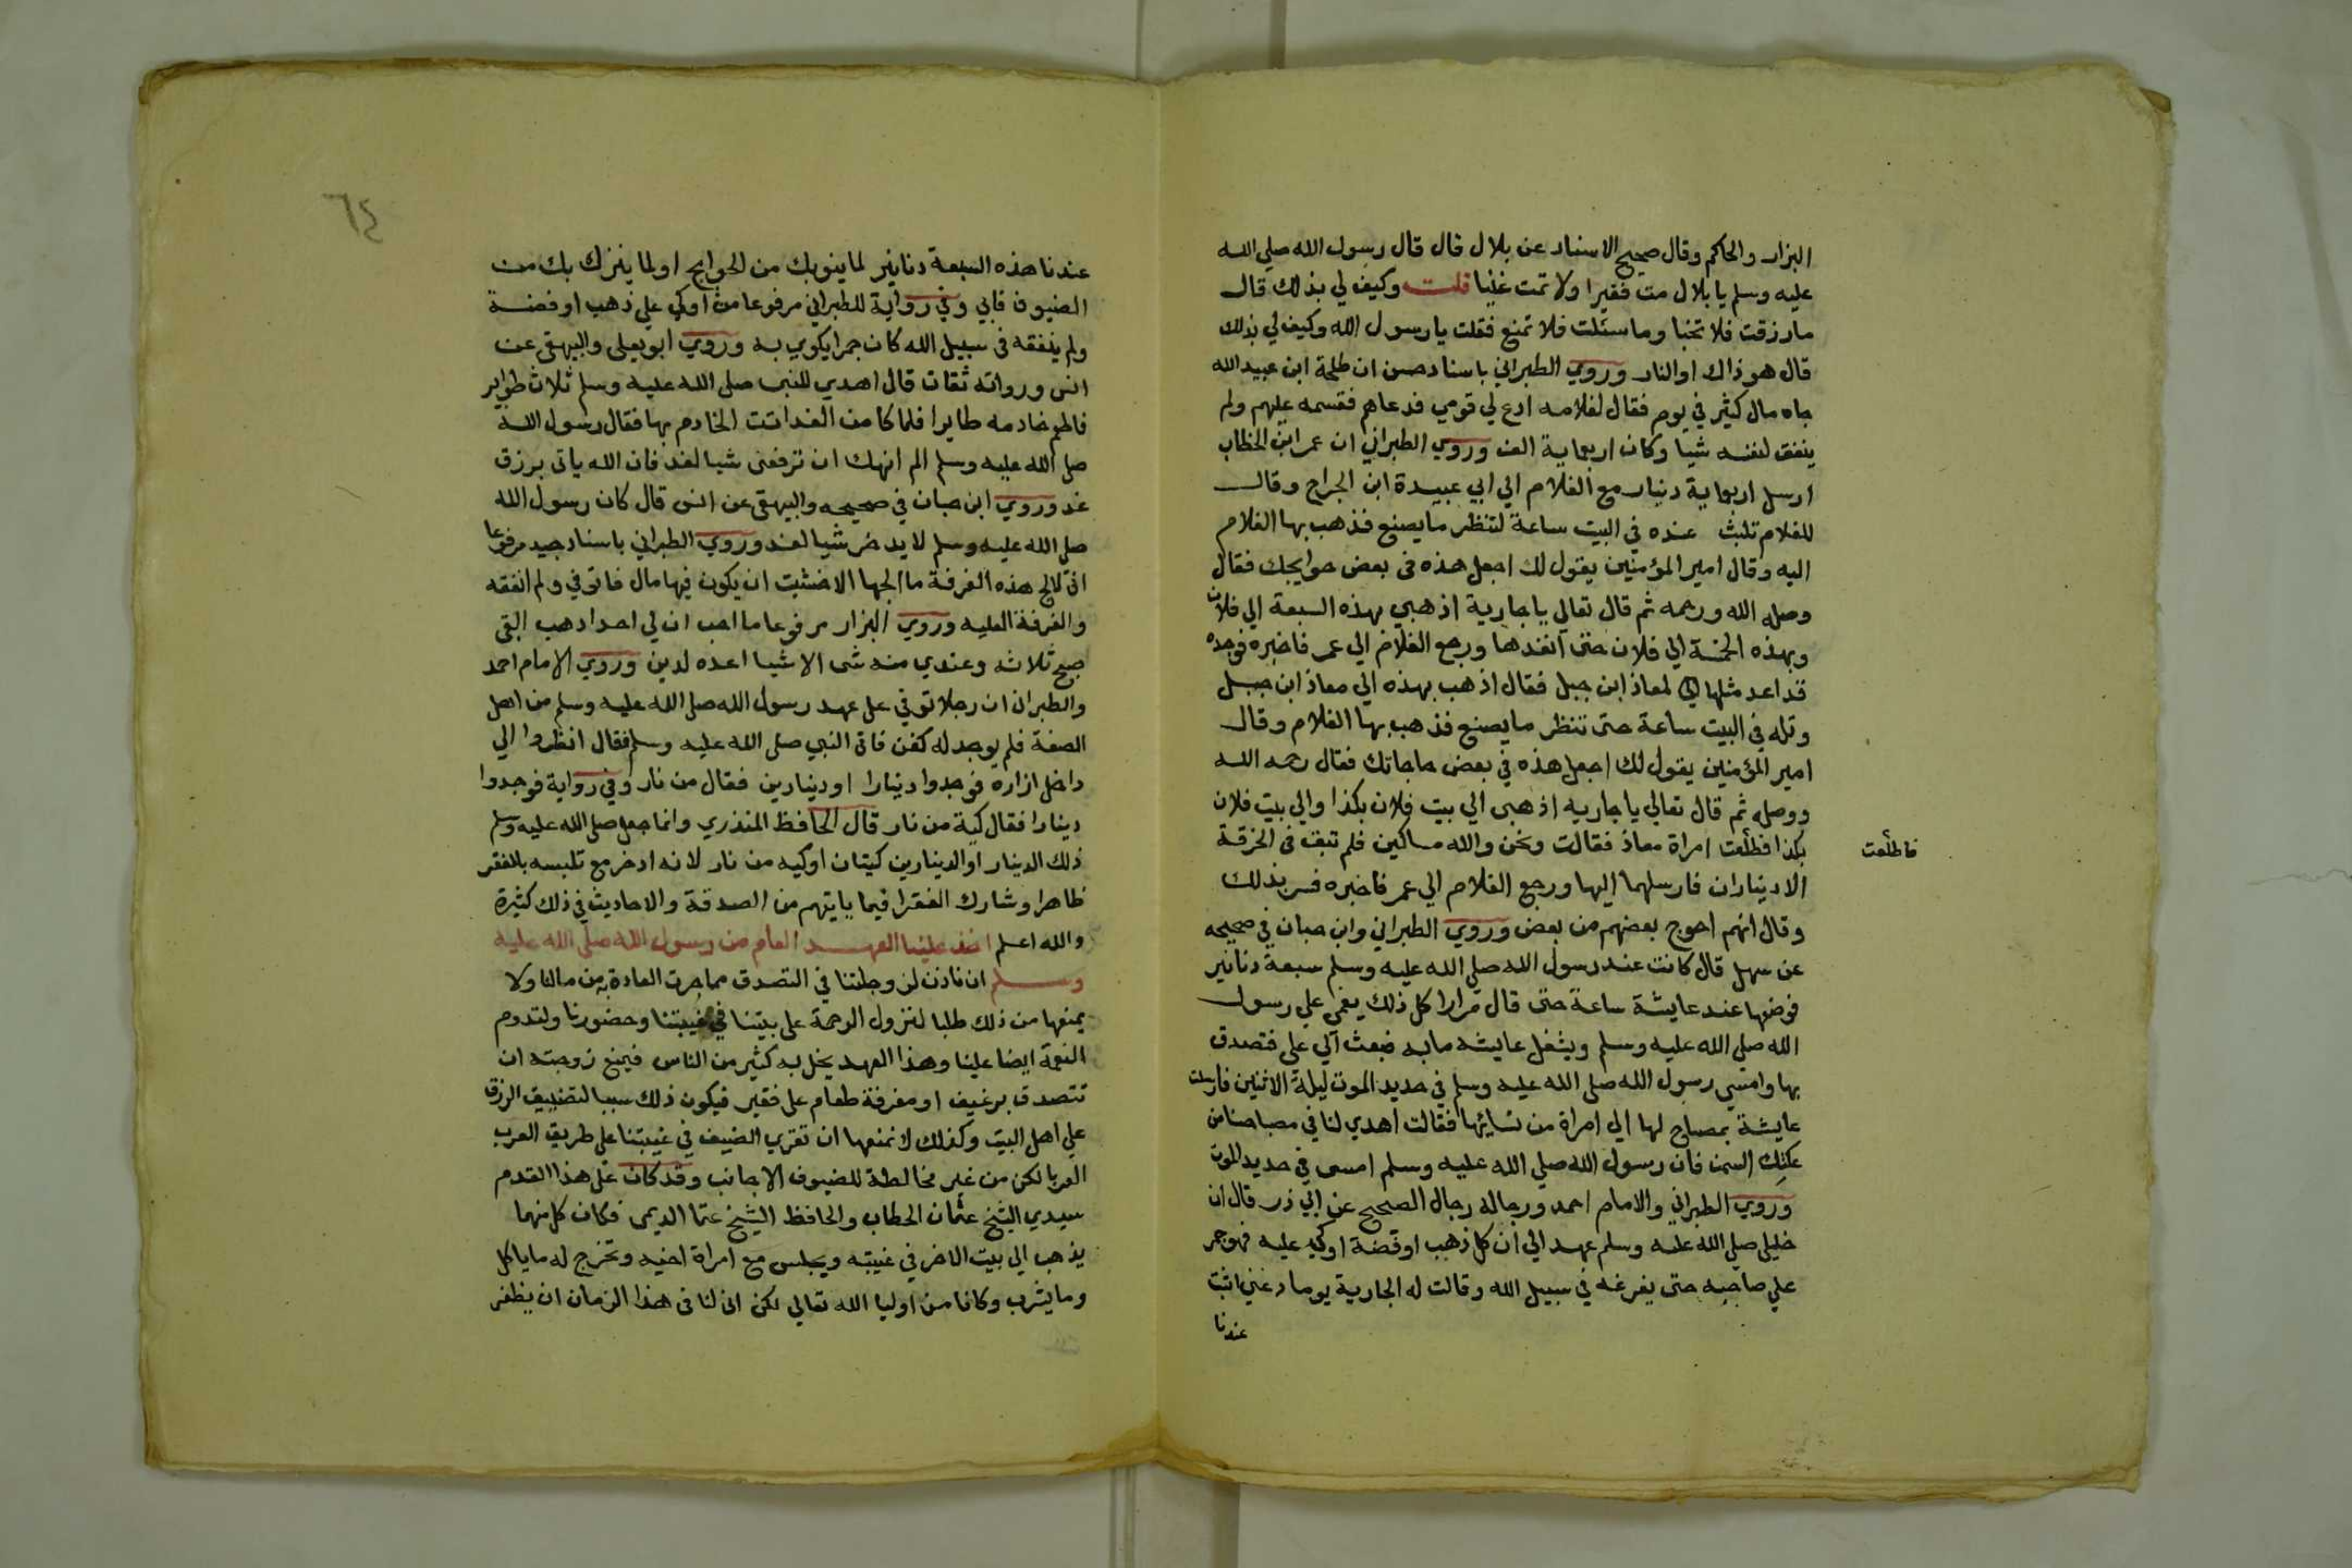 البزار والحاكم وقال صحيح الاسناد عن بلال قال قال رسول الله صلي الله
عليه وسلم يا بلال مت فقيرا ولا تمت غنيا قلت وكيف لي بذلك قال
مارزقت فلا تخبا وما سئلت فلا تمنع فقلت يا رسول الله وكيف لي بذلك
قال هو ذاك او النار وروي الطبراني باسناد حسن ان طلحة ابن عبيد الله
جاه مال كثير في يوم فقال لغلامه ادع لي قومي فدعاهم فقسمه عليهم ولم
ينفق لنفسه شيا وكان اربعماية الف وروي الطبراني ان عمر ابن الخطاب
ارسل اربعماية دينار مع الغلام الي ابي عبيدة ابن الجراح وقال
للغلام تلبث عنده في البيت ساعة لتنظر ما يصنع فذهب بها الغلام
اليه وقال امير المؤمنين يقول لك اجعل هذه في بعض حوايجك فقال
وصله الله ورحمه ثم قال تعالي يا جارية اذهبي بهذه السبعة الي فلان
وبهذه الخمسة الي فلان حتى انفدها ورجع الغلام الي عمر فاخبره فوجده
قد اعد مثلها لمعاذ ابن جبل فقال اذهب بهذه الي معاذ ابن جبل
وتله في البيت ساعة حتى تنظر ما يصنع فذهب بها الغلام وقال
امير المؤمنين يقول لك اجعل هذه في بعض حاجاتك فقال رحمه الله
ووصله ثم قال تعالي يا جاريه اذهبى الي بيت فلان بكذا والي بيت فلان
بكذا فطلعت امراة معاذ فقالت ونحن والله مساكين فلم تبق في الخرقة
فاطلعت
الا ديناران فارسلهما اليها ورجع الغلام الي عمر فاخبره فسر بذلك
وقال انهم احوج بعضهم من بعض وروي الطبراني وابن حبان في صحيحه
عن سهل قال كانت عند رسول الله صلي الله عليه وسلم سبعة دنانير
فوضعها عند عايشة ساعة حتى قال مرارا كل ذلك يغمى علي رسول
الله صلي الله عليه وسلم ويشغل عايشه ما به فبعث الي على فتصدق
بها وامسي رسول الله صلى الله عليه وسلم في حديد الموت ليلة الاثنين فارسلت
عايشة بمصباح لها الي امراة من نسائها فقالت اهدي لنا في مصباحنا من
عكتك السمن فان رسول الله صلي الله عليه وسلم امسى في حديد الموت
وروي الطبراني والامام احمد ورجاله رجال الصحيح عن ابي ذر قال ان
خليلي صلي الله عليه وسلم عهد الي ان كل ذهب او فضة اوكي عليه فهو جمر
علي صاحبه حتى يفرغه في سبيل الله وقالت له الجارية يوما دعني اثبت
عندنا
٦٤
عندنا هذه السبعة دنانير لما ينوبك من الحوايج او لما ينزل بك من
الضيوف فابي وفي رواية للطبراني مرفوعا من اوكي علي ذهب او فضة
ولم ينفقه في سبيل الله كان جمرا يكوي به وروي ابو يعلى والبيهقى عن
انس ورواته ثقات قال اهدي للنبى صلى الله عليه وسلم ثلاث طواير
فاطعم خادمه طايرا فلما كا من الغد اتت الخادم بها فقال رسول الله
صلى الله عليه وسلم الم انهك ان ترفعى شيا لغد فان الله ياتى برزق
غد وروي ابن حبان في صحيحه والبيهقى عن انس قال كان رسول الله
صلى الله عليه وسلم لا يدخر شيا لغد وروي الطبراني باسناد جيد مرفوعا
انى لالج هذه الغرفة ما الجها الا خشيت ان يكون فيها مال فاتوفي ولم انفقه
والغرفة العليه وروي البزار مرفوعا ما احب ان لي احدا دهب ابقى
صبح ثلاثه وعندي منه شى الا شيا اعده لدين وروي الامام احمد
والطبرانى ان رجلا توفي على عهد رسول الله صلى الله عليه وسلم من اهل
الصفة فلم يوجد له كفن فاتى النبي صلى الله عليه وسلم فقال انظروا الي
داخل ازاره فوجدوا دينارا او دينارين فقال من نار وفي رواية فوجدوا
دينارا فقال كية من نار قال الحافظ المنذري وانما جعل صلى الله عليه وسلم
ذلك الدينار او الدينارين كيتان او كيه من نار لانه ادخر مع تلبسه بالفقر
ظاهرا وشارك الفقرا فيما ياتيهم من الصدقة والاحاديث في ذلك كثيرة
والله اعلم اخذ علينا العهد العام من رسول الله صلى الله عليه
وسلم ان ناذن لزوجتنا في التصدق مما جرت العادة به من مالنا ولا
يمنعها من ذلك طلبا لنزول الرحمة على بيتنا في غيبتنا وحضورنا ولتدوم
النعمة ايضا علينا وهذا العهد يخل به كثير من الناس فيمنع زوجته ان
تتصدق برغيف او مغرفة طعام على فقير فيكون ذلك سببا لتضييق الرزق
علي اهل البيت وكذلك لا نمنعها ان تقري الضيف في غيبتنا على طريق العرب
العربا لكن من غير مخالطة للضيوف الاجانب وقد كان على هذا القدم
سيدي الشيخ عثمان الحطاب والحافظ الشيخ عثما الديمى فكان كل منهما
يذهب الي بيت الاخر في غيبته ويجلس مع امراة اخيه وتخرج له ما ياكل
وما يشرب وكانا من اوليا الله تعالي لكن انى لنا في هذا الزمان ان يظفر